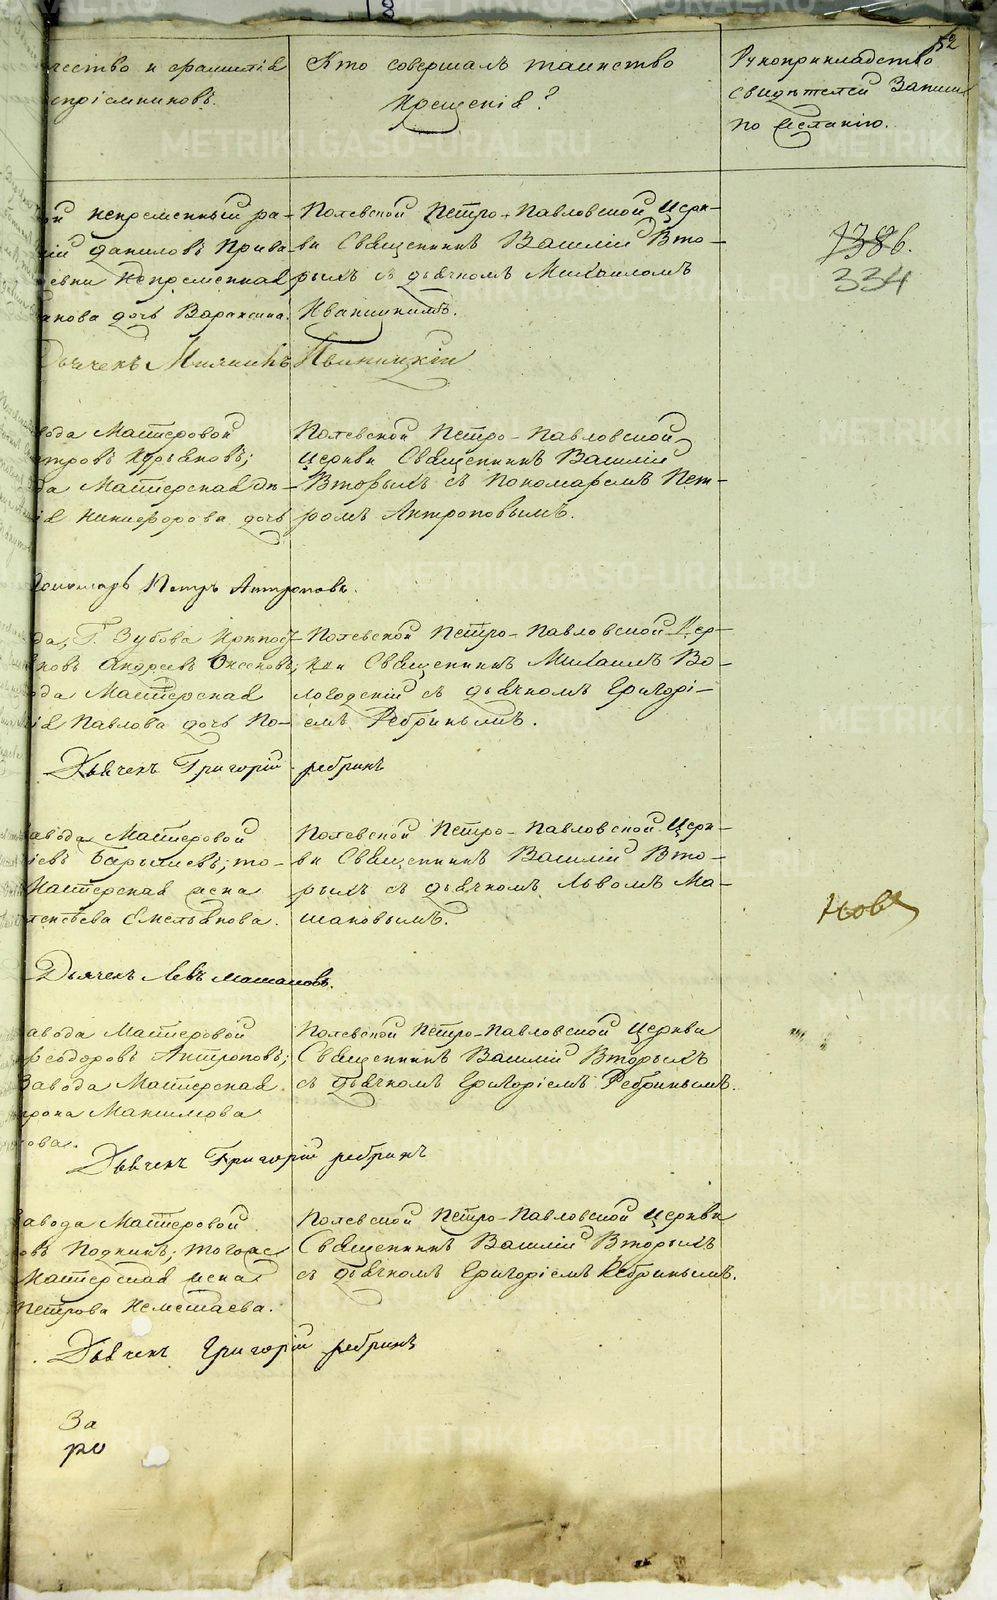 8
52
чество и фамилія
воспріемниковъ.
Кто совершалъ таинство
Крещенія?
Рукоприкладство
свидѣтелей Записи
по желанію.
непременный ра-
Даниловъ Прива-
Непременная
дочь Вараксина.
Полевской Петро-Павловской Церк-
ви Священникъ Василій Вто-
рыхъ съ дьячкомъ Михаиломъ
Иваницкимъ.
138 б.
334
Дьячекъ Михаилъ Иваницкій
Мастеровой
Мастерская
Никифорова дочь
Полевской Петро-Павловской
Церкви Священникъ Василій
Вторыхъ съ Пономаремъ Пет-
ромъ Антроповымъ.
Пономарь Петръ Антроповъ.
да, Г. Зубова
Андреевъ
да Мастерская
Павлова дочь По-
Полевской Петро-Павловской Цер-
кви Священникъ Михаилъ Во-
логодскій съ дьячкомъ Григорі-
емъ Ребринымъ.
Дьячекъ Григорій Ребринъ
завода Мастеровой
то-
Мастерская жена
Емельянова.
Полевской Петро-Павловской Церк-
ви Священникъ Василій Вто-
рыхъ съ дьячкомъ Львомъ Ма-
шановымъ.
Дьячекъ Левъ Машановъ.
завода Мастеровой
Ѳеодоровъ Антроповъ;
Завода Мастерская
Максимова
ова.
Полевской Петро-Павловской Церкви
Священникъ Василій Вторыхъ
съ дьячкомъ Григоріемъ Ребринымъ.
Дьячекъ Григорій Ребринъ
завода Мастеровой
тогоже
Мастерская жена
Петрова
Полевской Петро-Павловской Церкви
Священникъ Василій Вторыхъ
съ дьячкомъ Григоріемъ Ребринымъ.
Дьячекъ Григорій Ребринъ
За
ро
METRIKI.GASO-URAL.RU